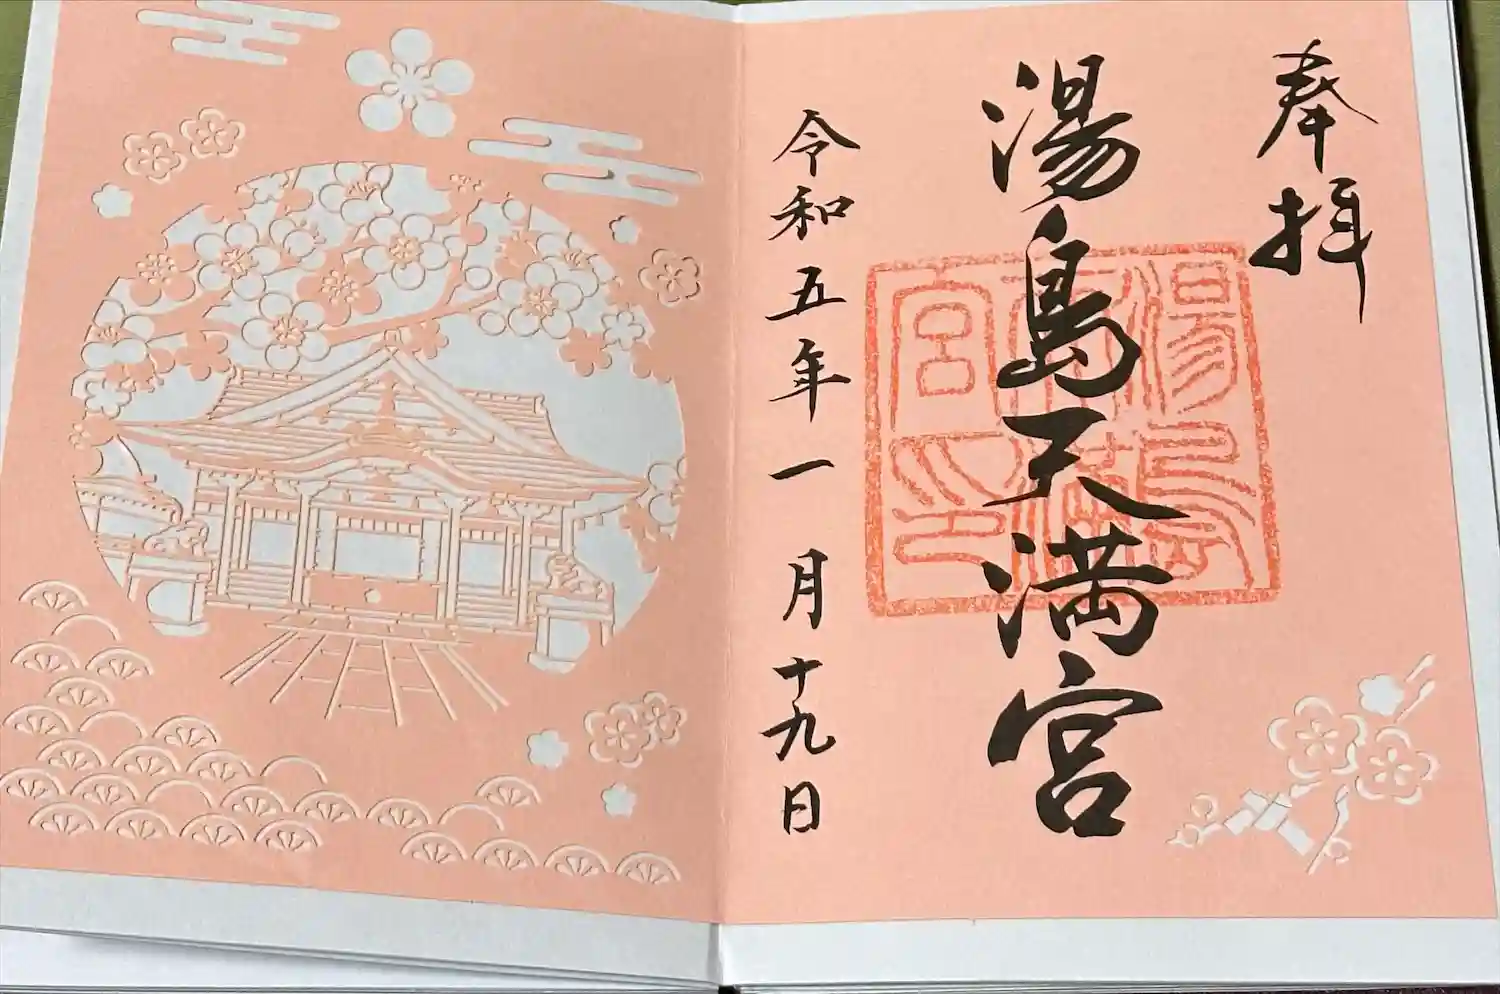 奉拝
湯島天満宮
湯島天満宮印
令和五年一月十九日